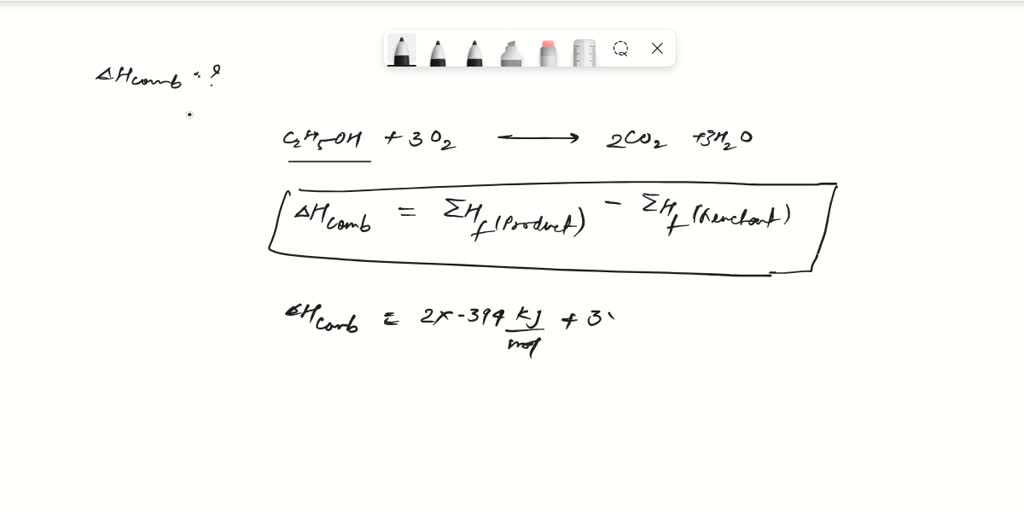 ΔHcomb = ?
C₂H₅-OH + 3O₂ ⟶ 2CO₂ + 3H₂O
ΔHcomb = ΣHf (Product) - ΣHf (Reactant)
ΔHcomb = 2x-394 kJ/mol + 3